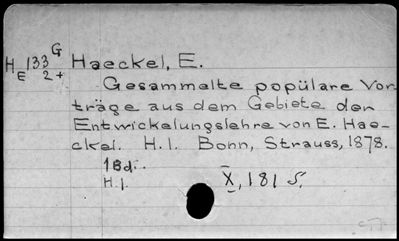 H E 133 G 2+ Haeckel, E.
Gesammelte populäre Vor-
träge aus dem Gebiete der
Entwickelungslehre von E. Hae-
ckel. H.1. Bonn, Strauss, 1878.
1 Bd.
H.1. X, 181 S.